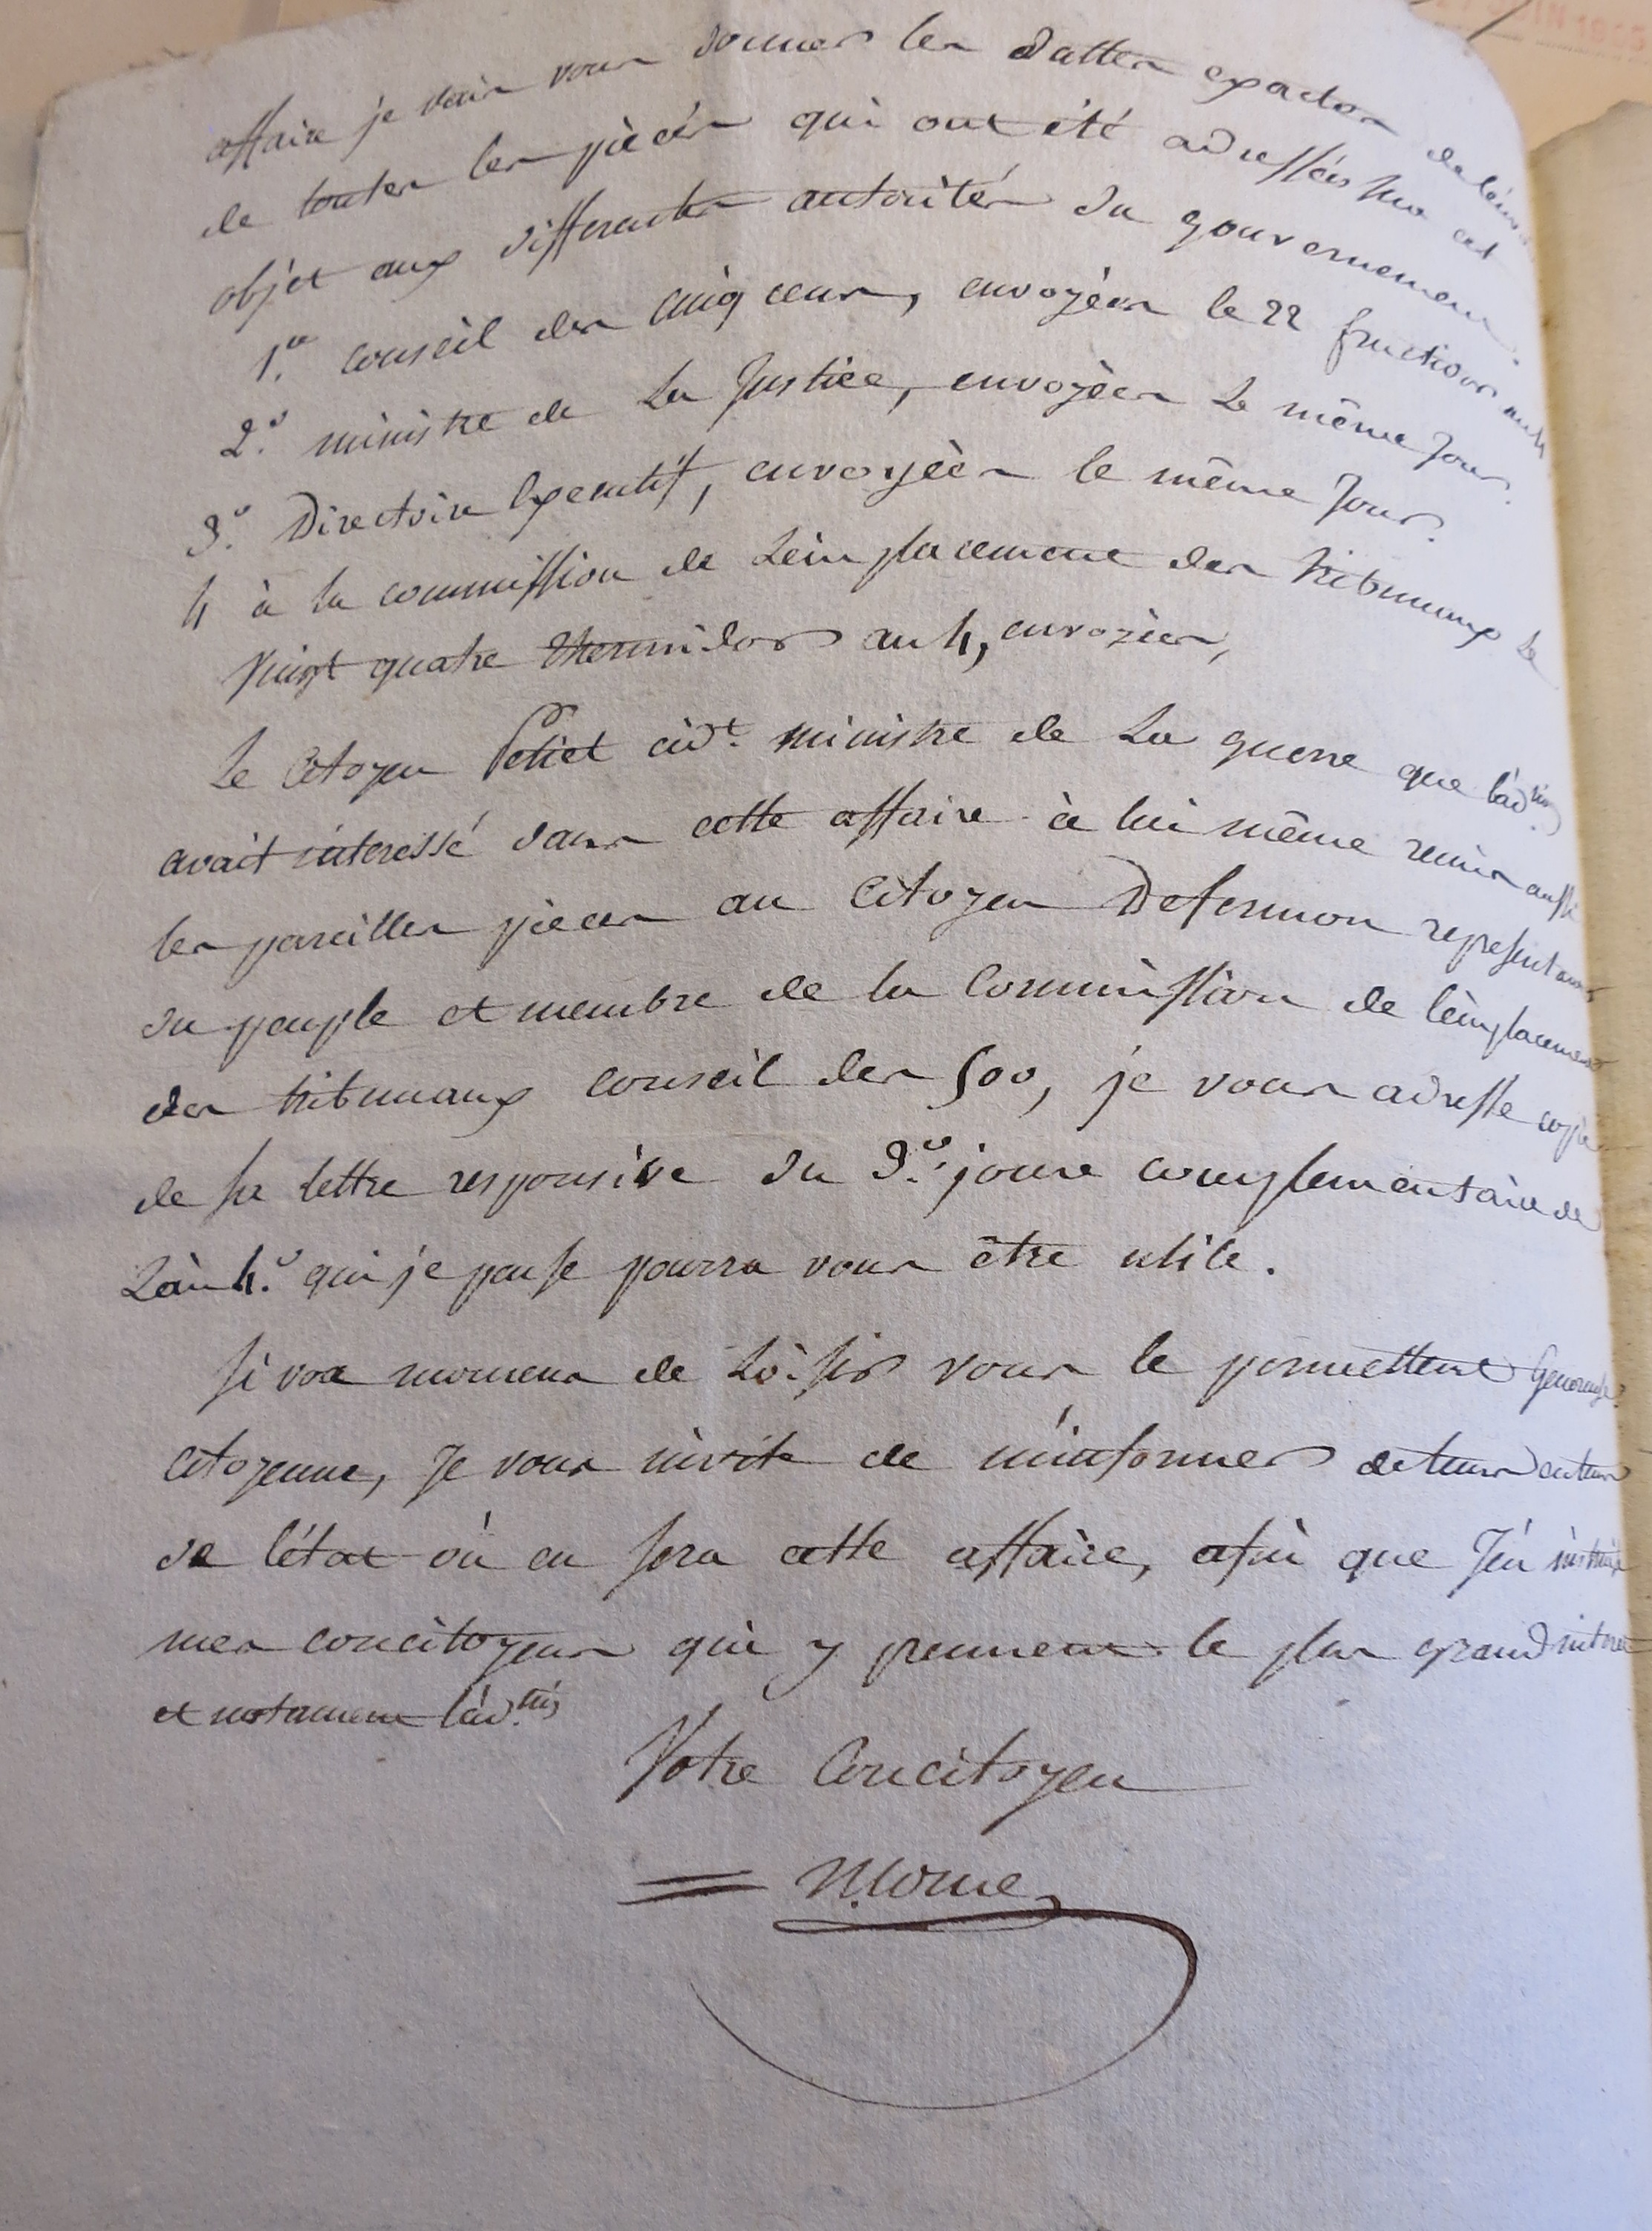 affaire je vais vous donner les dattes exactes de l'envoi
de toutes les pièces qui ont été adressées sur cet
objet aux differentes autorités du gouvernement.
1.º conseil des cinq cens, envoyées le 22 fructidor an 4
2.º ministre de La Justice, envoyées Le même Jour.
3.º Directoire Executif, envoyèes le même Jour.
4 à la commission de L'emplacement des tribunaux Le
Vingt quatre thermidor an 4, envoyées,
Le Citoyen Petiet cid.t ministre de La guerre que l'ad.tion
avait interessé dans cette affaire à lui même remis aussi
les pareilles pieces au Citoyen Defermon representant
du peuple et membre de la Commission de l'emplacement
des tribunaux conseil des 500, je vous adresse copie
de sa lettre responsive du 3.º joure complementaire de
L'an 4.º qui je pense pourra vous être utile.
Si vos momens de Loisir vous le permettent Genereuse
Citoyenne, Je vous invite de m'informer de tems en tems
de l'état où en sera cette affaire, afin que J'en instruise
mes concitoyens qui y prennent le plus grand interet
et notament l'ad.tion
Votre Concitoyen